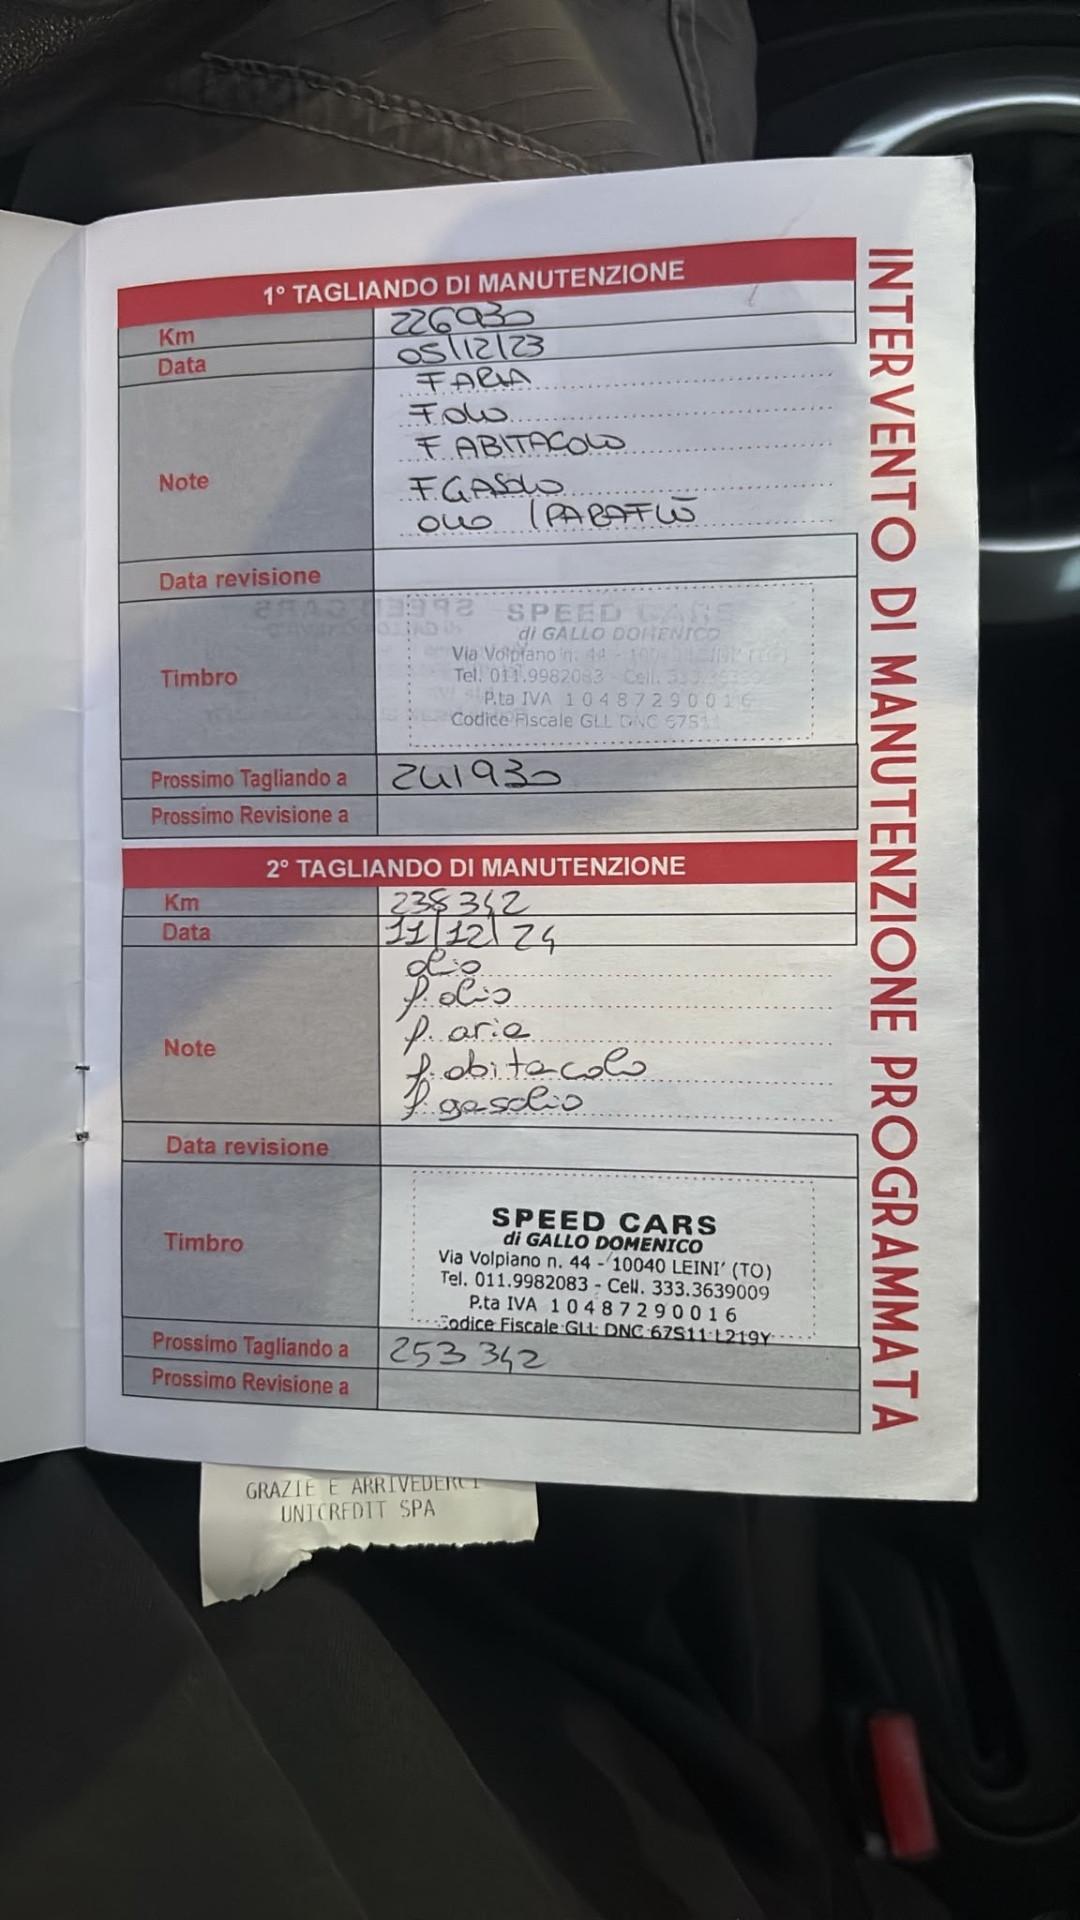 INTERVENTO DI MANUTENZIONE PROGRAMMATA
1° TAGLIANDO DI MANUTENZIONE
Km 226930
Data 05/12/23
Note
F ARIA
F OLIO
F. ABITACOLO
F. GASOLIO
OLIO / PARAFLÙ
Data revisione
Timbro
SPEED CARS
di GALLO DOMENICO
Via Volpiano n. 44 - 10040 LEINI' (TO)
Tel. 011.9982083 - Cell. 333.3639009
P.ta IVA 10487290016
Codice Fiscale GLL DNC 67S11
Prossimo Tagliando a 241930
Prossimo Revisione a
2° TAGLIANDO DI MANUTENZIONE
Km 238342
Data 11/12/24
Note
olio
f. olio
f. aria
f. abitacolo
f. gasolio
Data revisione
Timbro
SPEED CARS
di GALLO DOMENICO
Via Volpiano n. 44 - 10040 LEINI' (TO)
Tel. 011.9982083 - Cell. 333.3639009
P.ta IVA 10487290016
Codice Fiscale GLL DNC 67S11 L219Y
Prossimo Tagliando a 253342
Prossimo Revisione a
GRAZIE E ARRIVEDERCI
UNICREDIT SPA